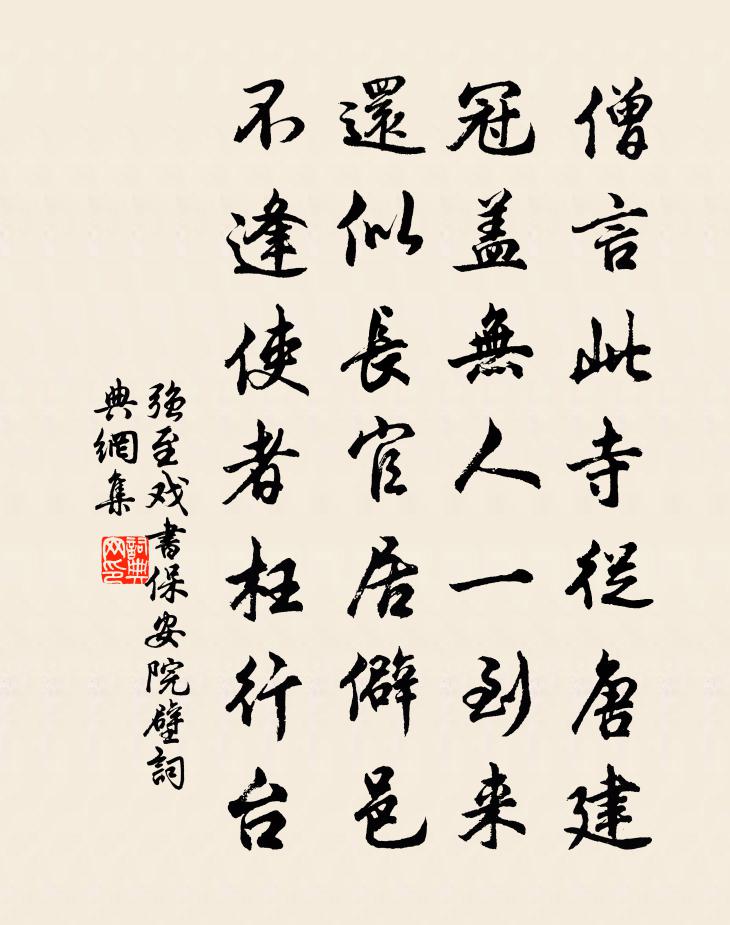 僧言此寺從唐建
冠盖無人一到来
還似長官居僻邑
不逢使者枉行台
强至戏書保安院壁詞
典網集
詞典
网